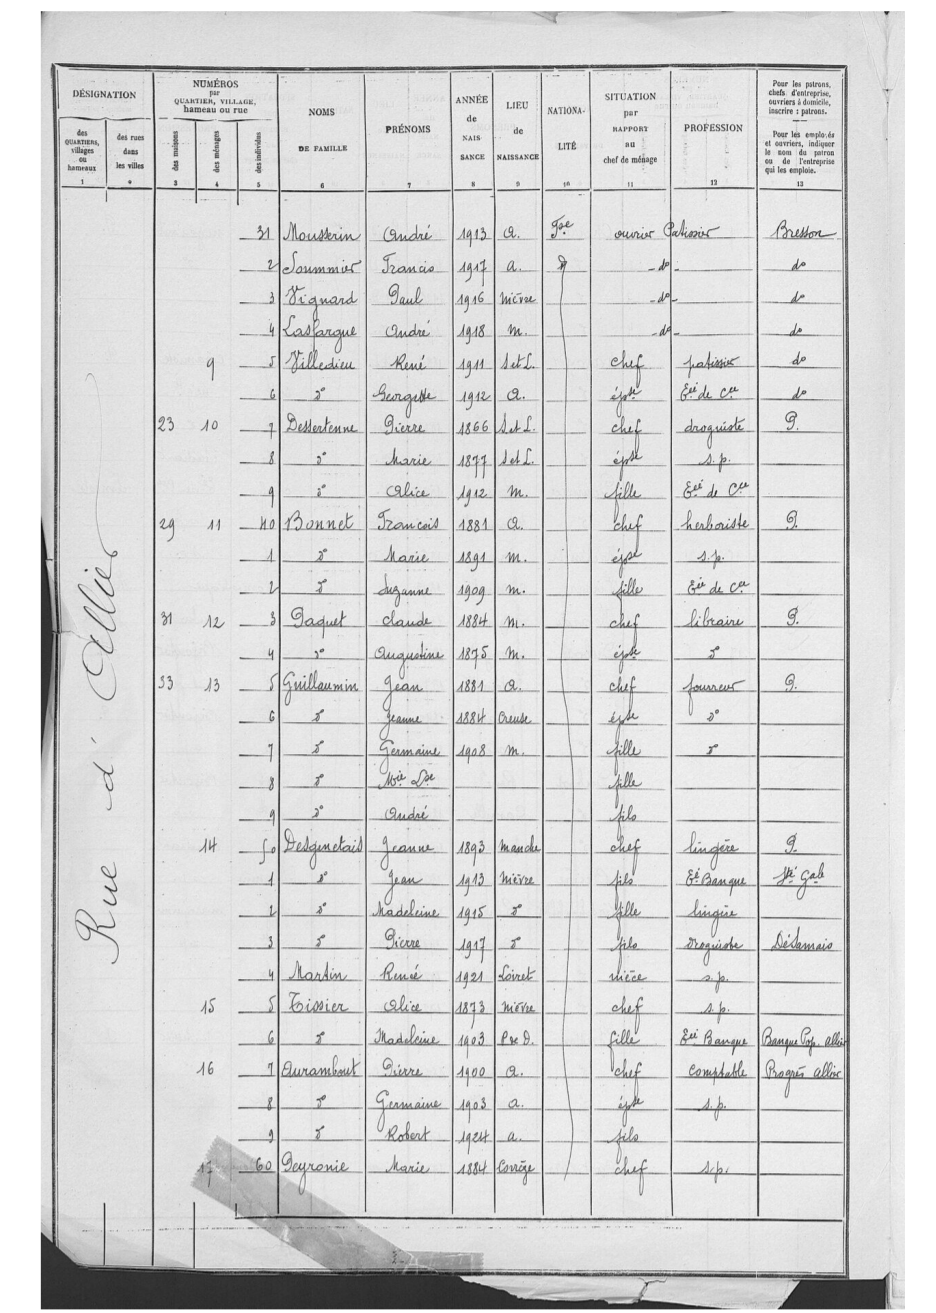 DÉSIGNATION
NUMÉROS par QUARTIER, VILLAGE, hameau ou rue
NOMS DE FAMILLE
PRÉNOMS
ANNÉE de NAISSANCE
LIEU de NAISSANCE
NATIONALITÉ
SITUATION par RAPPORT au chef de ménage
PROFESSION
Pour les patrons, chefs d'entreprise, ouvriers à domicile, inscrire : patrons.
Pour les employés et ouvriers, indiquer le nom du patron ou de l'entreprise qui les emploie.
des QUARTIERS, villages ou hameaux
des rues dans les villes
des maisons
des ménages
des individus
1 2 3 4 5 6 7 8 9 10 11 12 13
Rue d'Allier
31 Mousserin André 1913 A. Fse ouvrier Patissier Bresson
2 Soummier Francis 1917 a. d° - d° - d°
3 Vignard Paul 1916 Nièvre - d° - d°
4 Lasfargue André 1918 m. - d° - d°
9 5 Villedieu René 1911 S et L. chef patissier d°
6 d° Georgette 1912 A. épse Eée de Cce d°
23 10 7 Dessertenne Pierre 1866 S et L. chef droguiste P.
8 d° Marie 1877 S et L. épse s.p.
9 d° Alice 1912 m. fille Eée de Cce
29 11 40 Bonnet François 1881 A. chef herboriste P.
1 d° Marie 1891 m. épse s.p.
2 d° Suzanne 1909 m. fille Eée de Cce
31 12 3 Paquet Claude 1884 m. chef libraire P.
4 d° Augustine 1875 m. épse d°
33 13 5 Guillaumin Jean 1881 A. chef fourreur P.
6 d° Jeanne 1884 Creuse épse d°
7 d° Germaine 1908 m. fille d°
8 d° Mie Lse fille
9 d° André fils
14 50 Desgenetais Jeanne 1893 Manche chef lingère P.
1 d° Jean 1913 Nièvre fils Eé Banque Sté Gale
2 d° Madeleine 1915 d° fille lingère
3 d° Pierre 1917 d° fils droguiste Désamais
4 Martin Renée 1921 Loiret nièce s.p.
15 5 Tissier Alice 1873 Nièvre chef s.p.
6 d° Madeleine 1903 P de D. fille Eée Banque Banque Pop. Allier
16 7 Aurambout Pierre 1900 A. chef comptable Progrès Allier
8 d° Germaine 1903 a. épse s.p.
9 d° Robert 1924 a. fils
17 60 Peyronie Marie 1884 Corrèze chef s.p.